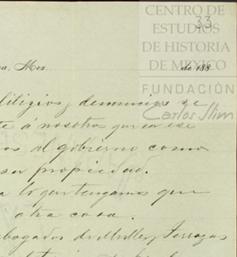 CENTRO DE
ESTUDIOS
DE HISTORIA
DE MÉXICO
FUNDACIÓN
Carlos Slim
33
a, Mex. de 188
litigios y denuncias se
te á nosotros que ese
os al gobierno como
su propiedad.
a lo que tengamos que
otra cosa.
bogados de Muller y Terrazas